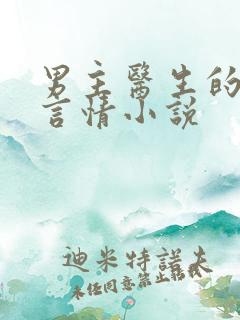 男主醫生的
言情小說
迪米特諾夫
未经同意禁止转载